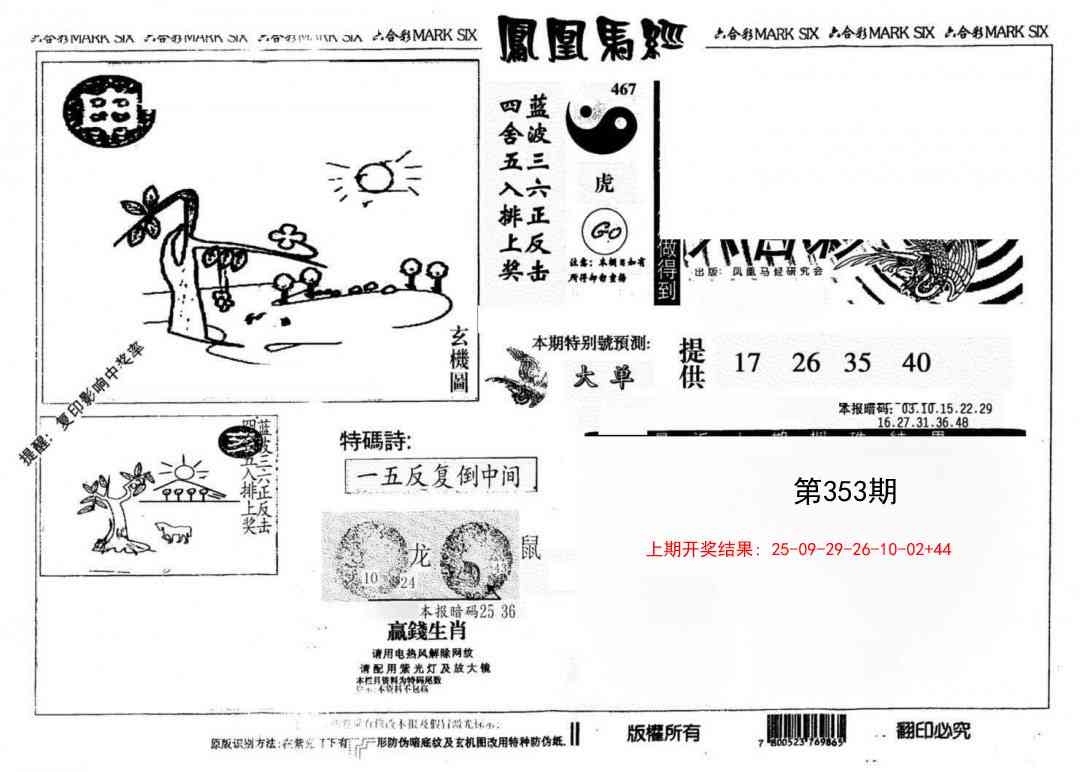 六合彩MARK SIX 六合彩MARK SIX 六合彩MARK SIX 六合彩MARK SIX
鳳凰馬經
六合彩MARK SIX 六合彩MARK SIX 六合彩MARK SIX
玄機圖
提醒：复印影响中奖率
蓝波三六正反击
四舍五入排上奖
467
虎
Go
注意：本期日如有
所得却勿重播
做得到
出版：凤凰马经研究会
本期特别號預测:
大单
提供
17 26 35 40
本报暗码: 03.10.15.22.29
16.27.31.36.48
第353期
上期开奖结果: 25-09-29-26-10-02+44
蓝波三六正反击
四舍五入排上奖
特碼詩:
一五反复倒中间
龙
鼠
10
24
43
本报暗码25 36
赢錢生肖
请用电热风解除网纹
请配用紫光灯及放大镜
本栏目资料为特码尾数
本资料不包稿
原版识别方法:
形防伪暗底纹及玄机图改用特种防伪纸.
版權所有
7 800523 769865
翻印必究